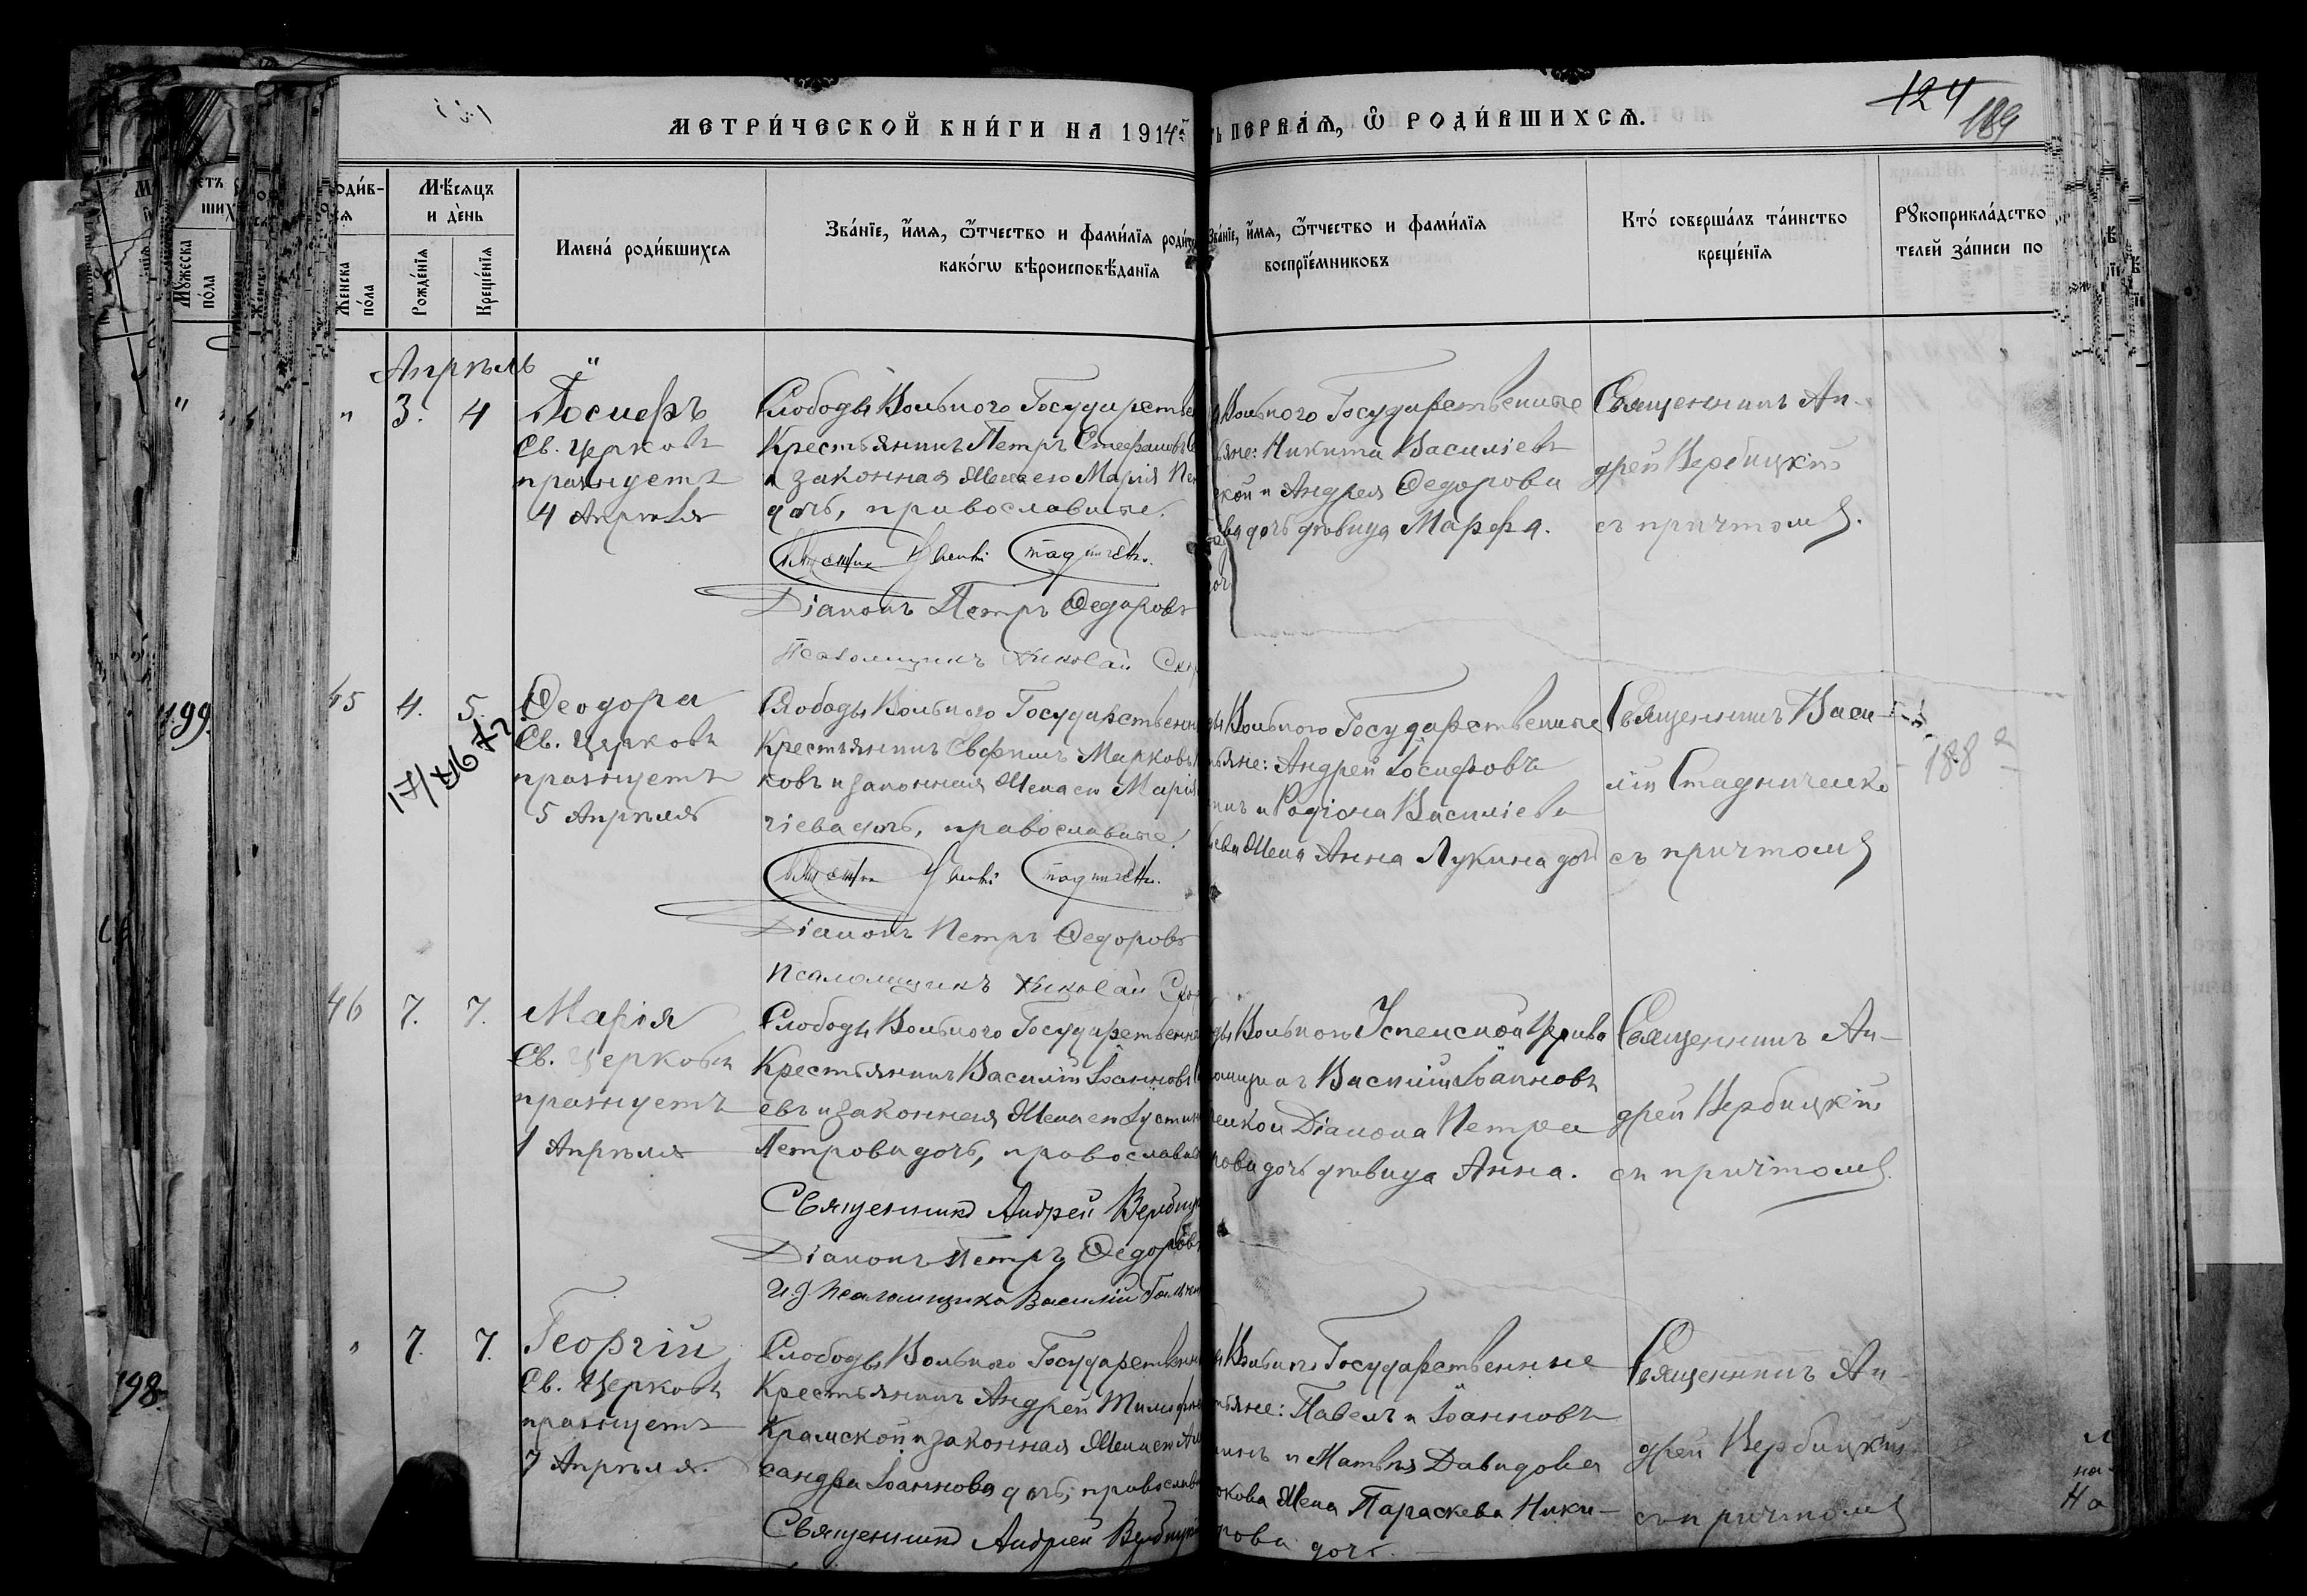 124
189
МЕТРИ́ЧЕСКОЙ КНИ́ГИ НА 1914й
ПЕРВАѦ, Ѡ҆ РОДИ́ВШИХСѦ.
Мѣ́сѧцъ
и де́нь
Же́нска
по́ла
Рожде́нїѧ
Креще́нїѧ
Имена́ роди́вшихсѧ
Зва́нїе, и҆́мѧ, ѻ҆́тчество и фами́лїѧ роди́
како́гѡ вѣроисповѣ́данїѧ
Зва́нїе, и҆́мѧ, ѻ҆́тчество и фами́лїѧ
воспрїе́мниковъ
Кто́ соверша́лъ та́инство
креще́нїѧ
Рꙋкоприкла́дство
телей за́писи по
Апрѣль
" 3. 4
Іосифъ
Св. Церковь
празнуетъ
4 Апрѣля
Слободы Вольного Государствен
Крестьянинъ Петръ Стефановъ
и законная жена его Марія
дочь, православные.
Діаконъ Петръ Федоровъ
Псаломщикъ Николай
Вольного Государственные
яне: Никита Василіевъ
ской и Андрея Федорова
ва дочь дѣвица Марфа.
Священникъ Ан-
дрей Вербицкій
съ причтомъ.
45 4. 5.
17/X 1967 г.
Феодора
Св. Церковь
празнуетъ
5 Апрѣля
Слободы Вольного Государственн
Крестьянинъ Евфимъ Марковъ
ковъ и законная жена его Марія
гіева дочь, православные.
Діаконъ Петръ Федоровъ
Псаломщикъ Николай
ды Вольного Государственные
яне: Андрей Іосифовъ
инъ и Родіона Василіева
ева жена Анна Лукина дочь
Священникъ Васи-
лій Стадниченко
съ причтомъ
188
199.
46 7. 7.
Марія
Св. Церковь
празнуетъ
1 Апрѣля
Слободы Вольного Государственн
Крестьянинъ Василій Іоанновъ
евъ и законная жена его Іустин
Петрова дочь, православн
Священникъ Андрей Вербицк
Діаконъ Петръ Федоровъ
И. д. псаломщика Василій
ды Вольного Успенской Церкви
омщикъ Василій Іоанновъ
енко и Діакона Петра
рова дочь дѣвица Анна.
Священникъ Ан-
дрей Вербицкій
съ причтомъ.
" 7. 7.
198.
Георгій
Св. Церковь
празнуетъ
7 Апрѣля.
Слободы Вольного Государственн
Крестьянинъ Андрей Тимофе
Крамской и законная жена его Але
сандра Іоаннова дочь, православн
Священникъ Андрей Вербицкі
Вольного Государственные
яне: Павелъ Іоанновъ
инъ и Матвѣя Давидова
кова жена Параскева Ники-
рова дочь.
Священникъ Ан-
дрей Вербицкій
съ причтомъ